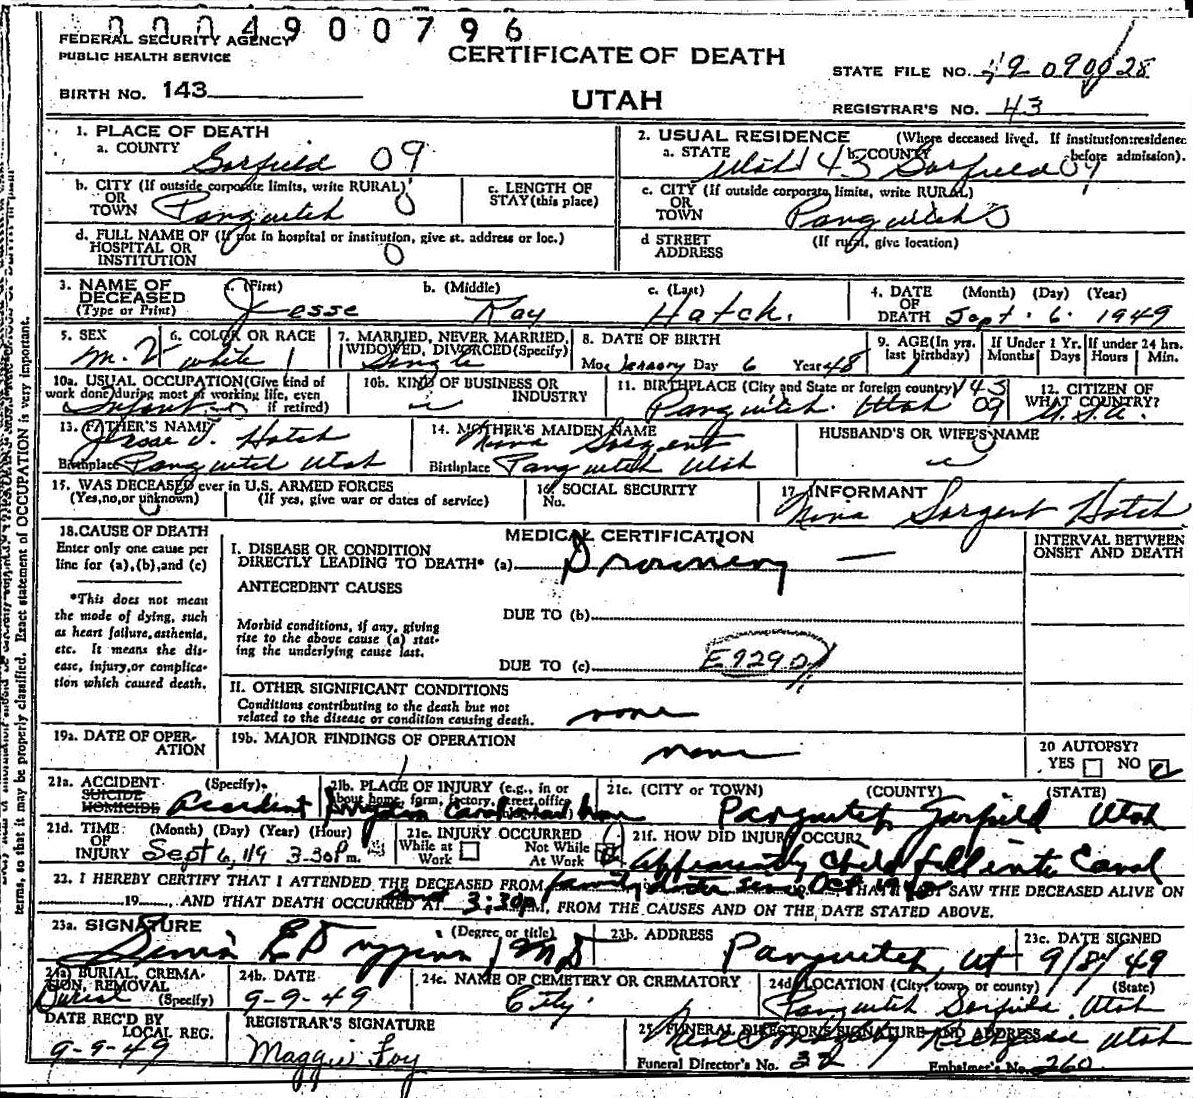 0004900796
FEDERAL SECURITY AGENCY
PUBLIC HEALTH SERVICE
CERTIFICATE OF DEATH
STATE FILE NO. 49 090028
BIRTH NO. 143
UTAH
REGISTRAR'S NO. 43
1. PLACE OF DEATH
a. COUNTY Garfield 09
2. USUAL RESIDENCE (Where deceased lived. If institution:residence before admission).
a. STATE Utah 43 b. COUNTY Garfield 09
b. CITY (If outside corporate limits, write RURAL) OR TOWN Panguitch 0
c. LENGTH OF STAY (this place)
c. CITY (If outside corporate limits, write RURAL) OR TOWN Panguitch 0
d. FULL NAME OF (If not in hospital or institution, give st. address or loc.) HOSPITAL OR INSTITUTION 0
d STREET ADDRESS (If rural, give location)
3. NAME OF DECEASED (Type or Print)
a. (First) Jesse b. (Middle) Ray c. (Last) Hatch.
4. DATE OF DEATH (Month) (Day) (Year) Sept. 6. 1949
5. SEX M.
6. COLOR OR RACE white 1
7. MARRIED, NEVER MARRIED, WIDOWED, DIVORCED (Specify) Single
8. DATE OF BIRTH Mo. January Day 6 Year 48
9. AGE (In yrs. last birthday) 1
If Under 1 Yr. Months Days
If under 24 hrs. Hours Min.
10a. USUAL OCCUPATION (Give kind of work done during most of working life, even if retired) Infant
10b. KIND OF BUSINESS OR INDUSTRY
11. BIRTHPLACE (City and State or foreign country) 143 Panguitch. Utah 09
12. CITIZEN OF WHAT COUNTRY? U.S.A.
13. FATHER'S NAME Jesse J. Hatch
Birthplace Panguitch Utah
14. MOTHER'S MAIDEN NAME Nina Sargent
Birthplace Panguitch Utah
HUSBAND'S OR WIFE'S NAME
15. WAS DECEASED ever in U.S. ARMED FORCES (Yes, no, or unknown) (If yes, give war or dates of service)
16. SOCIAL SECURITY No.
17. INFORMANT Nina Sargent Hatch
18. CAUSE OF DEATH
Enter only one cause per line for (a), (b), and (c)
*This does not mean the mode of dying, such as heart failure, asthenia, etc. It means the disease, injury, or complication which caused death.
MEDICAL CERTIFICATION
INTERVAL BETWEEN ONSET AND DEATH
I. DISEASE OR CONDITION DIRECTLY LEADING TO DEATH* (a) Drowning
ANTECEDENT CAUSES
DUE TO (b)
Morbid conditions, if any, giving rise to the above cause (a) stating the underlying cause last.
DUE TO (c) E929
II. OTHER SIGNIFICANT CONDITIONS
Conditions contributing to the death but not related to the disease or condition causing death. none
19a. DATE OF OPERATION
19b. MAJOR FINDINGS OF OPERATION none
20 AUTOPSY?
YES NO
21a. ACCIDENT SUICIDE HOMICIDE (Specify) Accident
21b. PLACE OF INJURY (e.g., in or about home, farm, factory, street, office
21c. (CITY or TOWN) (COUNTY) (STATE)
Panguitch Garfield Utah
21d. TIME OF INJURY (Month) (Day) (Year) (Hour) Sept 6, 3:30 P m.
21e. INJURY OCCURRED
While at Work Not While At Work
21f. HOW DID INJURY OCCUR?
apparently Child fell into Canal
22. I HEREBY CERTIFY THAT I ATTENDED THE DECEASED FROM family doctor since Oct 1948 SAW THE DECEASED ALIVE ON
19 , AND THAT DEATH OCCURRED AT 3:30 P M., FROM THE CAUSES AND ON THE DATE STATED ABOVE.
23a. SIGNATURE (Degree or title) MD
23b. ADDRESS Panguitch, Ut
23c. DATE SIGNED 9/8/49
24a. BURIAL, CREMATION, REMOVAL (Specify) Burial
24b. DATE 9-9-49
24c. NAME OF CEMETERY OR CREMATORY City.
24d. LOCATION (City, town, or county) (State)
Panguitch Garfield Utah
DATE REC'D BY LOCAL REG. 9-9-49
REGISTRAR'S SIGNATURE
Maggie Foy
25. FUNERAL DIRECTOR'S SIGNATURE AND ADDRESS
Richfield Utah
Funeral Director's No. 32
Embalmer's No. 260
terms, so that it may be properly classified. Exact statement of OCCUPATION is very important.